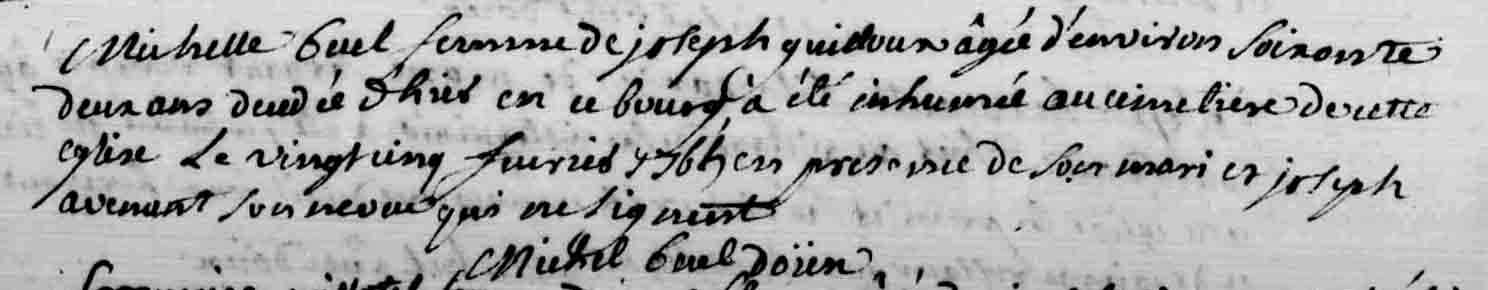 Michelle Buel femme de joseph quidoux âgée d'environ soixonte
deux ans decedée d'hier en ce bourg a été inhumée au cimetiere de cette
eglise Le vingt cinq fevrier en presence de son mari et joseph
avenant son neveu qui ne signent
Michel Buel Doïen